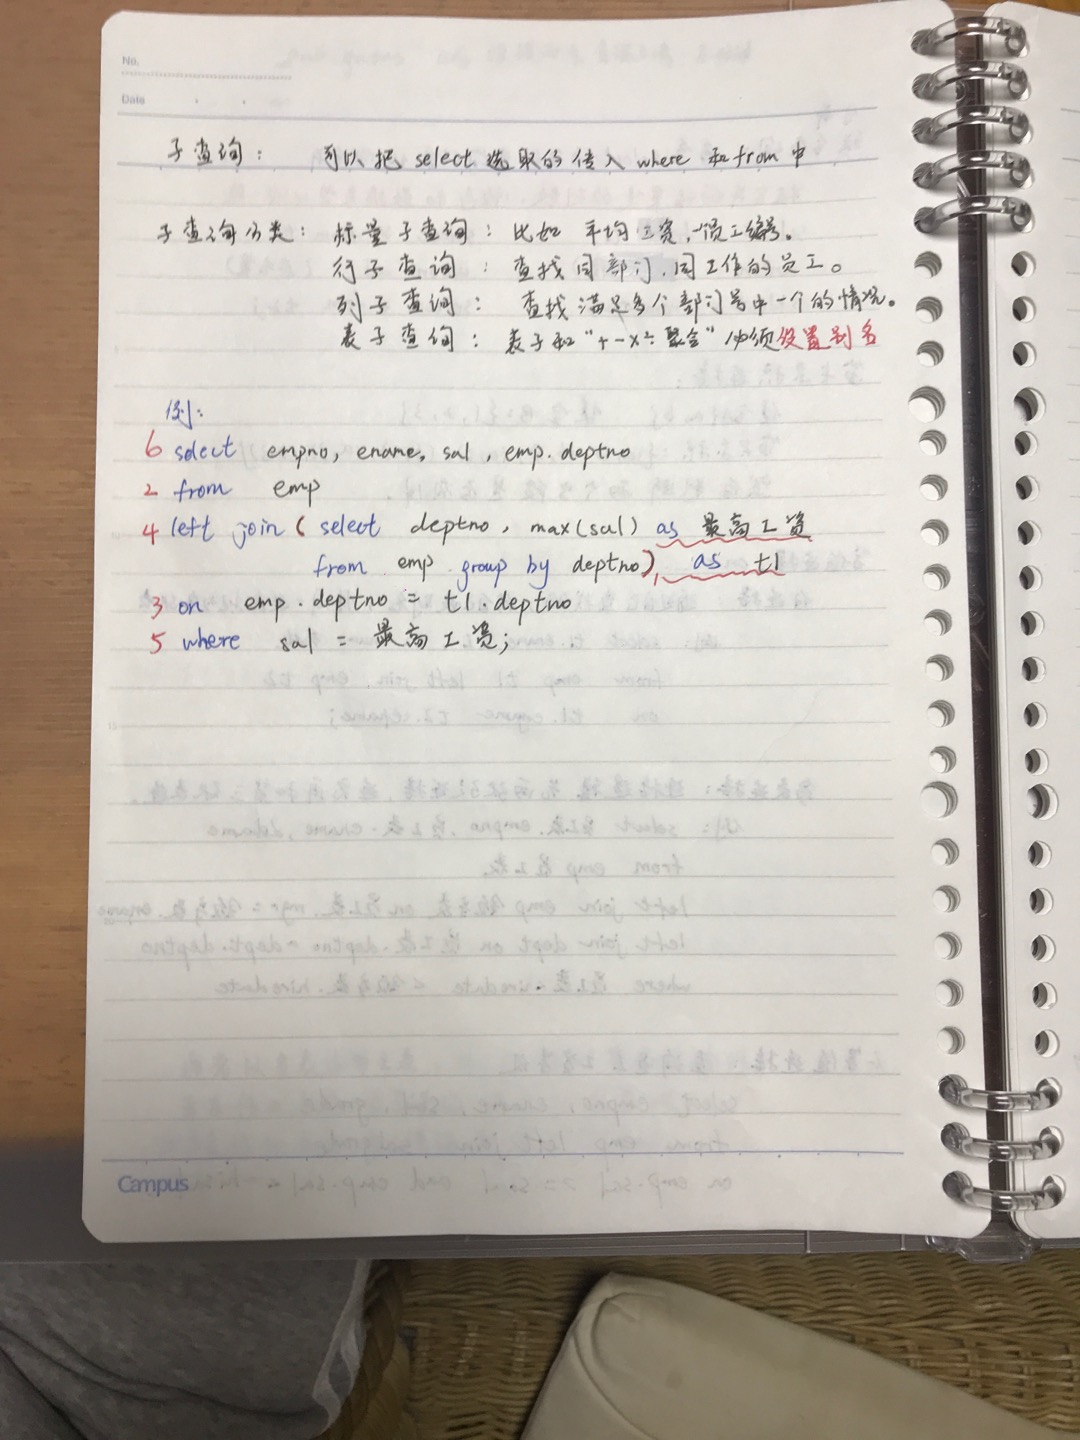 No.
Date
子查询： 可以把 select 选取的传入 where 和 from 中
子查询分类： 标量子查询： 比如 平均工资，员工编号。
行子查询 ： 查找同部门，同工作的员工。
列子查询 ： 查找满足多个部门号中一个的情况。
表子查询 ： 表子和“+-×÷聚合”必须设置别名
例：
6 select empno, ename, sal, emp.deptno
2 from emp
4 left join ( select deptno, max(sal) as 最高工资
from emp group by deptno), as t1
3 on emp.deptno = t1.deptno
5 where sal = 最高工资;
Campus